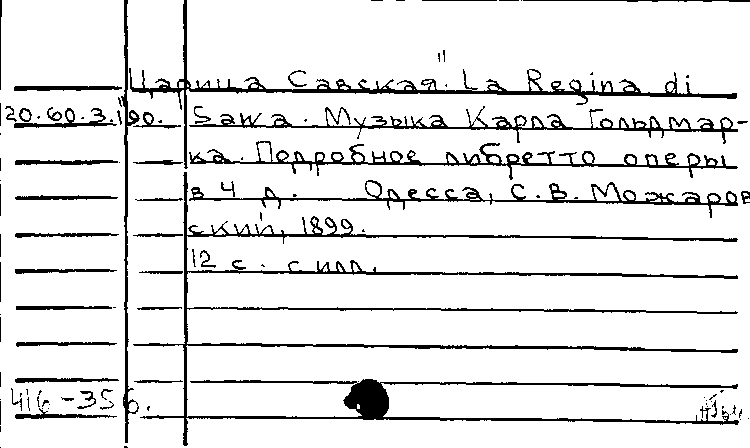 "Царица Савская". La Regina di
20.60.3.190. Sawa. Музыка Карла Гольдмар-
ка. Подробное либретто оперы
в 4 д. Одесса, С.В. Можаров
ский, 1899.
12 с. с илл.
416-356.